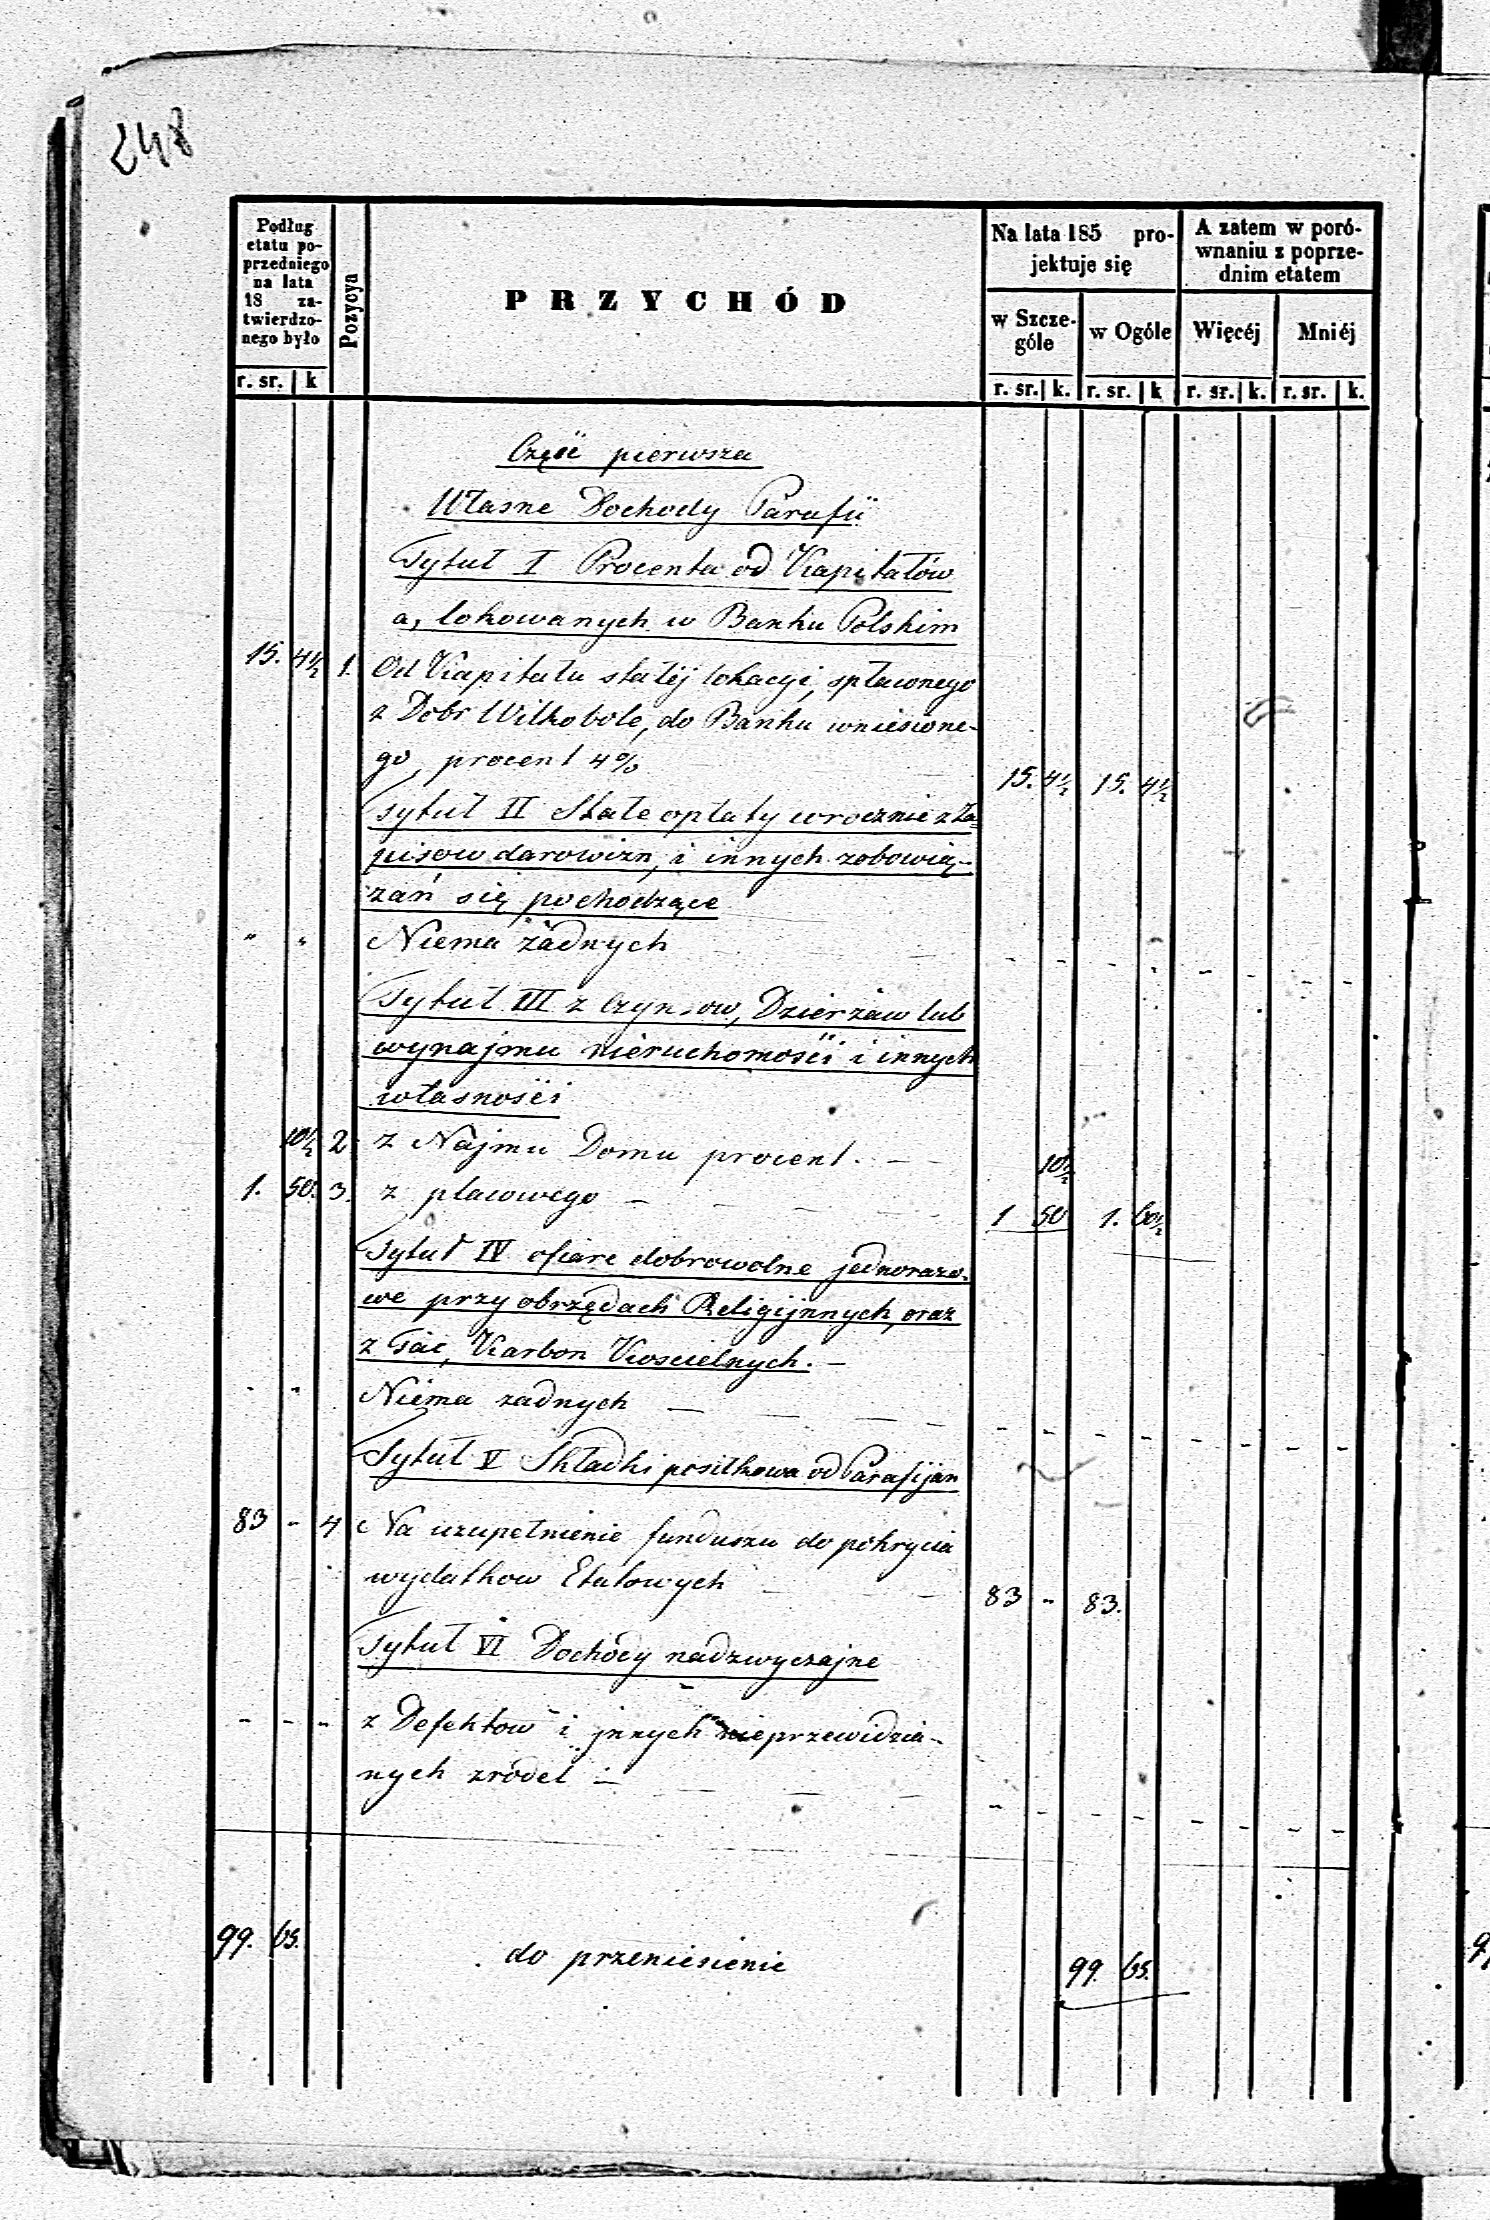 248
Podług etatu poprzedniego na lata 18 zatwierdzonego było
Pozycya
PRZYCHÓD
Na lata 185 projektuje się
A zatem w porównaniu z poprzednim etatem
w Szczególe w Ogóle Więcéj Mniéj
r. sr. k r. sr. k. r. sr. k r. sr. k. r. sr. k.
Część pierwsza
Własne Dochody Parafii
Tytuł I Procenta od Kapitałów
a, lokowanych w Banku Polskim
15. 4½ 1. Od Kapitału stałéj lokacyi, spłaconego
z Dobr Wilkobole, do Banku wniesione-
go, procent 4% 15. 4½ 15. 4½
Tytuł II Stałe opłaty wrocznie z Za-
pisow darowizn, i innych zobowią-
zań się pochodzące
" " Niema żadnych - - - - - - - -
Tytuł III z Czynsow, Dzierżaw lub
wynajmu nieruchomości i innych
własności
10½ 2. z Najmu Domu procent. — 10½
1. 50. 3. z placowego — 1 50 1. 60½
Tytuł IV ofiare dobrowolne jednorazo-
we przy obrzędach Religijnnych, oraz
z Tac, Karbon Koscielnych. —
- - Niema zadnych — - - - - - - - -
Tytuł V Składki posiłkowa od Parafijan
83 - 4 Na uzupełnienie funduszu do pokrycia
wydatkow Etatowych 83 - 83.
Tytuł VI Dochody nadzwyczajne
- - - z Defektow i jnnych nieprzewidzia-
nych zródeł — - - - - - - - -
99. 65. do przeniesienie 99. 65.